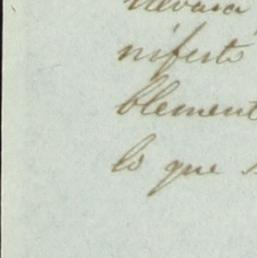 nifesto
blement
lo que